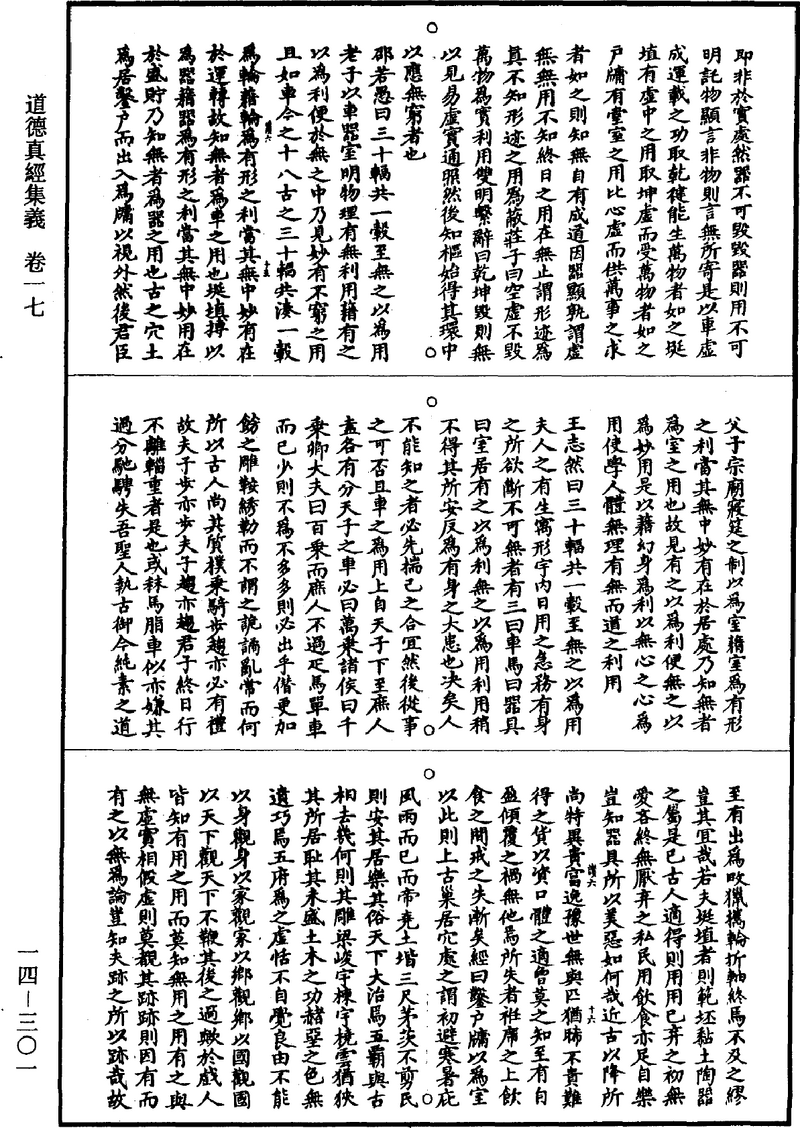 道德真經集義　卷一七
一四－三〇一
即非於實處然器不可毀毀器則用不可
明託物顯言非物則言無所寄是以車虛
成運載之功取乾健能生萬物者如之埏
埴有虛中之用取坤虛而受萬物者如之
戶牖有堂室之用比心虛而供萬事之求
者如之則知無自有成道因器顯孰謂虛
無無用不知終日之用在無止謂形迹為
真不知形迹之用為蔽莊子曰空虛不毀
萬物為實利用雙明繫辭曰乾坤毀則無
以見易虛實適照然後知樞始得其環中
以應無窮者也
邵若愚曰三十輻共一轂至無之以為用
老子以車器室明物理有無利用藉有之
以為利便於無之中乃見妙有不窮之用
且如車今之十八古之三十輻共湊一轂
為輪藉輪為有形之利當其無中妙有在
於運轉故知無者為車之用也埏埴摶以
為器藉器為有形之利當其無中妙用在
於盛貯乃知無者為器之用也古之穴土
為居鑿戶而出入為牖以視外然後君臣
父子宗廟寢筵之制以為室藉室為有形
之利當其無中妙有在於居處乃知無者
為室之用也故見有之以為利便無之以
為妙用是以藉幻身為利以無心之心為
用使學人體無理有無而道之利用
王志然曰三十輻共一轂至無之以為用
夫人之有生寓形宇內日用之急務有身
之所欲斷不可無者有三曰車馬曰器具
曰室居有之以為利無之以為用利用稍
不得其所安反為有身之大患也決矣人
不能知之者必先揣己之合宜然後從事
之可否且車之為用上自天子下至庶人
盖各有分天子之車必曰萬乘諸侯曰千
乘卿大夫曰百乘而庶人不過疋馬單車
而已少則不為不多多則必出乎僭更加
飾之雕鞍綉勒而不謂之詭譎亂常而何
所以古人尚其質樸乘騎步趨亦必有禮
故夫子步亦步夫子趨亦趨君子終日行
不離輜重者是也或秣馬脂車似亦嫌其
過分馳騁失吾聖人執古御今純素之道
至有出為畋獵攜輪折軸終馬不及之繆
豈其宜哉若夫埏埴者則範坯黏土陶器
之屬是已古人適得則用用已弃之初無
愛吝終無厭弃之私民用飲食亦足自樂
豈知器具所以美惡如何哉近古以降所
尚特異貴富逸豫世無與匹猶睎不貴難
得之貨以資口體之適曾莫之知至有自
盈傾覆之禍無他焉所失者袵席之上飲
食之間戒之失漸矣經曰鑿戶牖以為室
以此則上古巢居穴處之謂初避寒暑庇
風雨而已而帝堯土堦三尺茅茨不剪民
則安其居樂其俗天下大治焉五霸與古
相去幾何則其雕梁峻宇棟宇撓雲猶狹
其所居耻其未盛土木之功赭堊之色無
遺巧焉五府為之虛恬不自覺良由不能
以身觀身以家觀家以鄉觀鄉以國觀國
以天下觀天下不鞭其後之過歟於戲人
皆知有用之用而莫知無用之用有之與
無虛實相假虛則莫觀其跡跡則因有而
有之以無為論豈知夫跡之所以跡哉故